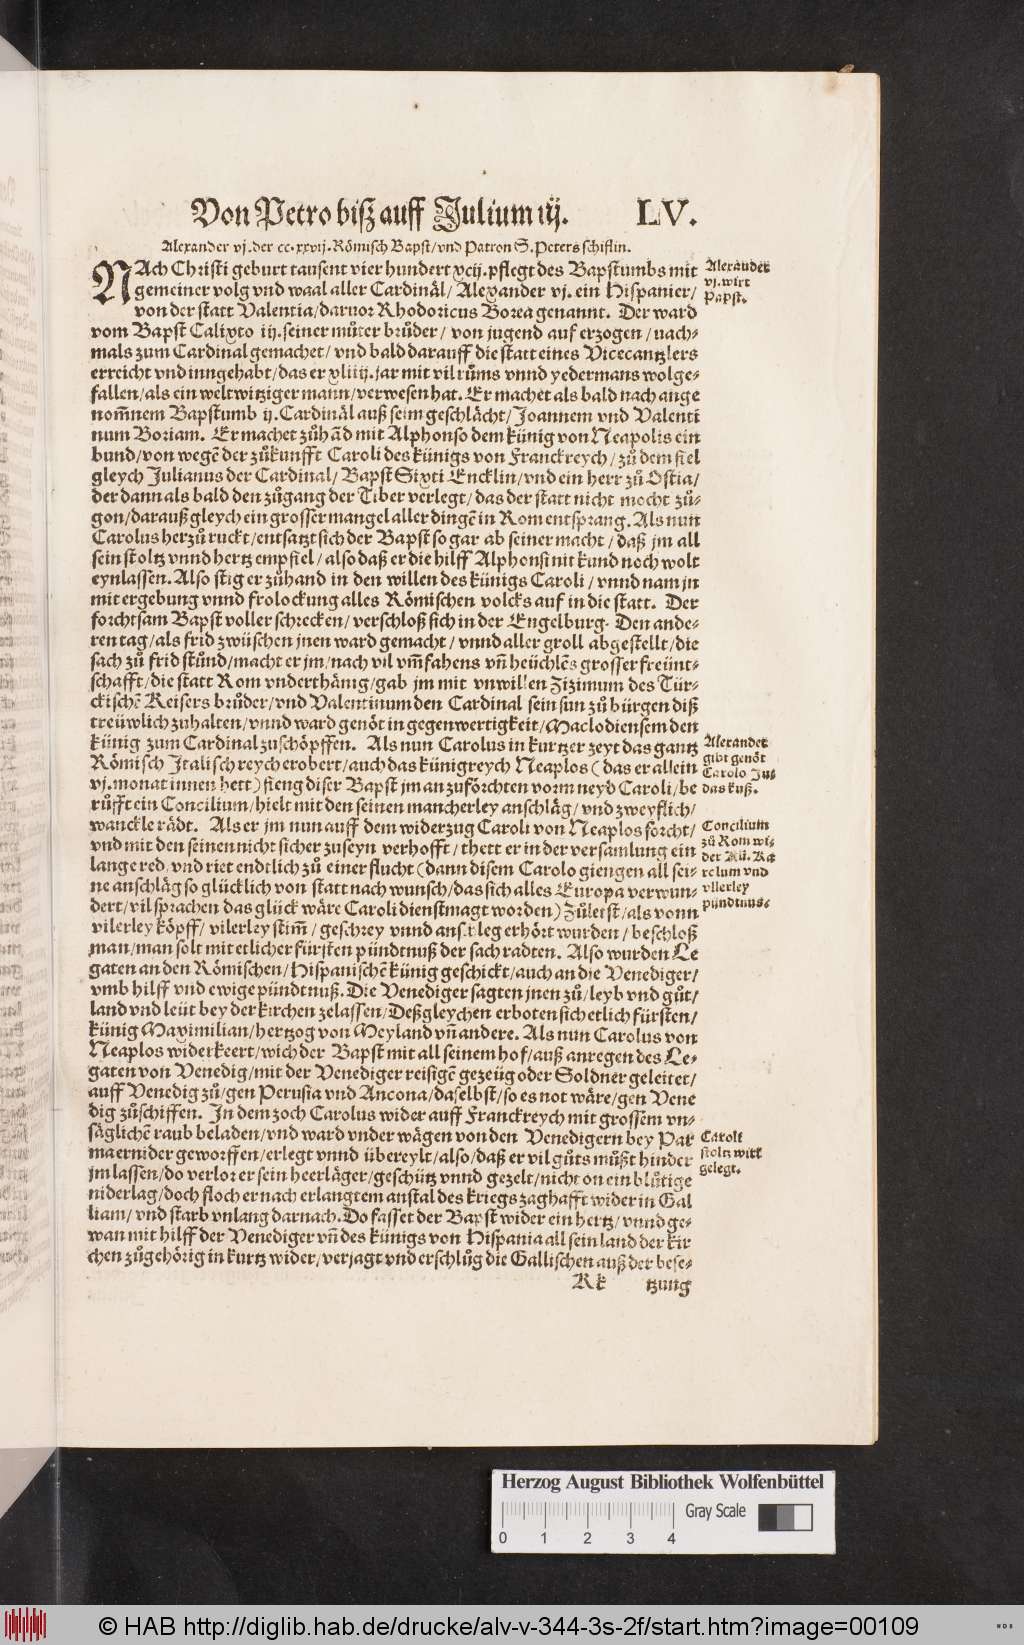 Von Petro biß auff Julium iij. LV.
Alexander vj. der cc.xxvij. Römisch Bapst/vnd Patron S. Peters schiflin.
NAch Christi geburt tausent vier hundert xcij. pflegt des Bapstumbs mit
gemeiner volg vnd waal aller Cardinäl/ Alexander vj. ein Hispanier/
von der statt Valentia/daruor Rhodoricus Borea genannt. Der ward
vom Bapst Calixto iij. seiner můter brůder/ von jugend auf erzogen/nach-
mals zum Cardinal gemachet/ vnd bald darauff die statt eines Vicecantzlers
erreicht vnd inngehabt/das er xliiij. jar mit vil růms vnnd yedermans wolge-
fallen/als ein weltwitziger mann/verwesen hat. Er machet als bald nach ange
nom̃nem Bapstumb ij. Cardinäl auß seim geschlächt/Joannem vnd Valenti
num Boriam. Er machet zůhãd mit Alphonso dem künig von Neapolis ein
bund/von wegẽ der zůkunfft Caroli des künigs von Franckreych/zů dem fiel
gleych Julianus der Cardinal/ Bapst Sixti Encklin/vnd ein herr zů Ostia/
der dann als bald den zůgang der Tiber verlegt/das der statt nicht mocht zů-
gon/darauß gleych ein grosser mangel aller dingẽ in Rom entsprang. Als nun
Carolus herzů ruckt/entsatzt sich der Bapst so gar ab seiner macht/daß jm all
sein stoltz vnnd hertz empfiel/also daß er die hilff Alphonsi nit kund noch wolt
eynlassen. Also stig er zůhand in den willen des künigs Caroli/vnnd nam jn
mit ergebung vnnd frolockung alles Römischen volcks auf in die statt. Der
forchtsam Bapst voller schrecken/verschloß sich in der Engelburg. Den ande-
ren tag/als frid zwüschen jnen ward gemacht/vnnd aller groll abgestellt/die
sach zů frid stůnd/macht er jm/nach vil vm̃fahens vñ heüchlẽs grosser freünt-
schafft/die statt Rom vnderthänig/gab jm mit vnwillen Zizimum des Tür-
ckischẽ Keisers brůder/vnd Valentinum den Cardinal sein sun zů bürgen diß
treüwlich zuhalten/vnnd ward genöt in gegenwertigkeit/Maclodiensem den
künig zum Cardinal zuschöpffen. Als nun Carolus in kurtzer zeyt das gantz
Römisch Italisch reych erobert/auch das künigreych Neaplos (das er allein
vj. monat innen hett) fieng diser Bapst jm an zuförchten vorm neyd Caroli/be
růfft ein Concilium/hielt mit den seinen mancherley anschläg/vnd zweyflich/
wanckle rädt. Als er jm nun auff dem widerzug Caroli von Neaplos forcht/
vnd mit den seinen nicht sicher zuseyn verhofft/thett er in der versamlung ein
lange red/vnd riet endtlich zů einer flucht (dann disem Carolo giengen all sei-
ne anschläg so glücklich von statt nach wunsch/das sich alles Europa verwun-
dert/vil sprachen das glück wäre Caroli dienstmagt worden) Zůletst/als vonn
vilerley köpff/ vilerley stim̃/ geschrey vnnd anschleg erhört wurden/ beschloß
man/man solt mit etlicher fürsten pündtnuß der sach radten. Also wurden Le
gaten an den Römischen/Hispanischẽ künig geschickt/auch an die Venediger/
vmb hilff vnd ewige pündtnuß. Die Venediger sagten jnen zů/leyb vnd gůt/
land vnd leüt bey der kirchen zelassen/Deßgleychen erboten sich etlich fürsten/
künig Maximilian/hertzog von Meyland vñ andere. Als nun Carolus von
Neaplos widerkeert/wich der Bapst mit all seinem hof/auß anregen des Le-
gaten von Venedig/mit der Venediger reisigẽ gezeüg oder Soldner geleitet/
auff Venedig zů/gen Perusia vnd Ancona/daselbst/so es not wäre/gen Vene
dig zůschiffen. In dem zoch Carolus wider auff Franckreych mit grossem vn-
säglichẽ raub beladen/vnd ward vnder wägen von den Venedigern bey Par
ma ernider geworffen/erlegt vnnd übereylt/also/daß er vil gůts můßt hinder
jm lassen/do verlor er sein heerläger/geschütz vnnd gezelt/nicht on ein blůtige
niderlag/doch floch er nach erlangtem anstal des kriegs zaghafft wider in Gal
liam/ vnd starb vnlang darnach. Do fasset der Bapst wider ein hertz/vnnd ge-
wan mit hilff der Venediger vñ des künigs von Hispania all sein land der kir
chen zůgehörig in kurtz wider/verjagt vnd erschlůg die Gallischen auß der bese-
Kk tzung
Alexander
vj. wirt
Papst.
Alexander
gibt genöt
Carolo
das kuß.
Concilium
zů Rom wi-
der
rolum vnd
vllerley
pündtnus.
Caroli
stoltz wirt
gelegt.
Herzog August Bibliothek Wolfenbüttel
Gray Scale
0 1 2 3 4
© HAB http://diglib.hab.de/drucke/alv-v-344-3s-2f/start.htm?image=00109